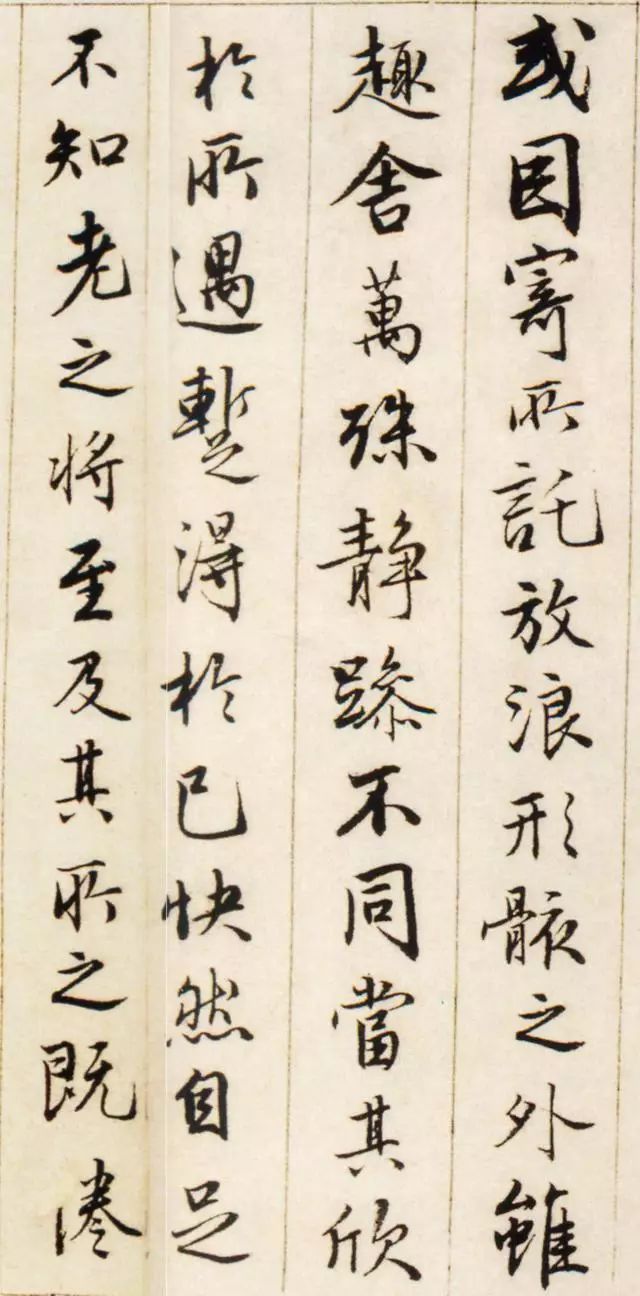 或因寄所託放浪形骸之外雖
趣舍萬殊静躁不同當其欣
於所遇蹔得於己快然自足
不知老之将至及其所之既惓